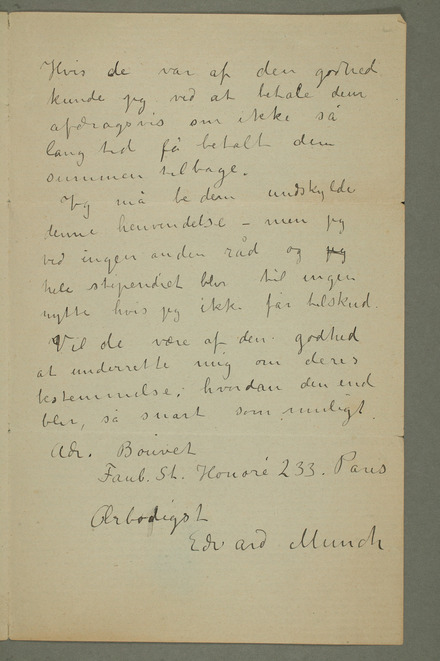 Hvis de var af den godhed
kunde jeg ved at betale dem
afdragsvis om ikke så
lang tid få betalt dem
summen tilbage.
Jeg må be dem undskylde
denne henvendelse – men jeg
ved ingen anden råd og jeg
hele stipendiet blir til ingen
nytte hvis jeg ikke får tilskud.
Vil de være af den godhed
at underrette mig om deres
bestemmelse, hvordan den end
blir, så snart som muligt.
Adr. Bouvet
Faub. St. Honoré 233. Paris
Ærbødigst
Edvard Munch